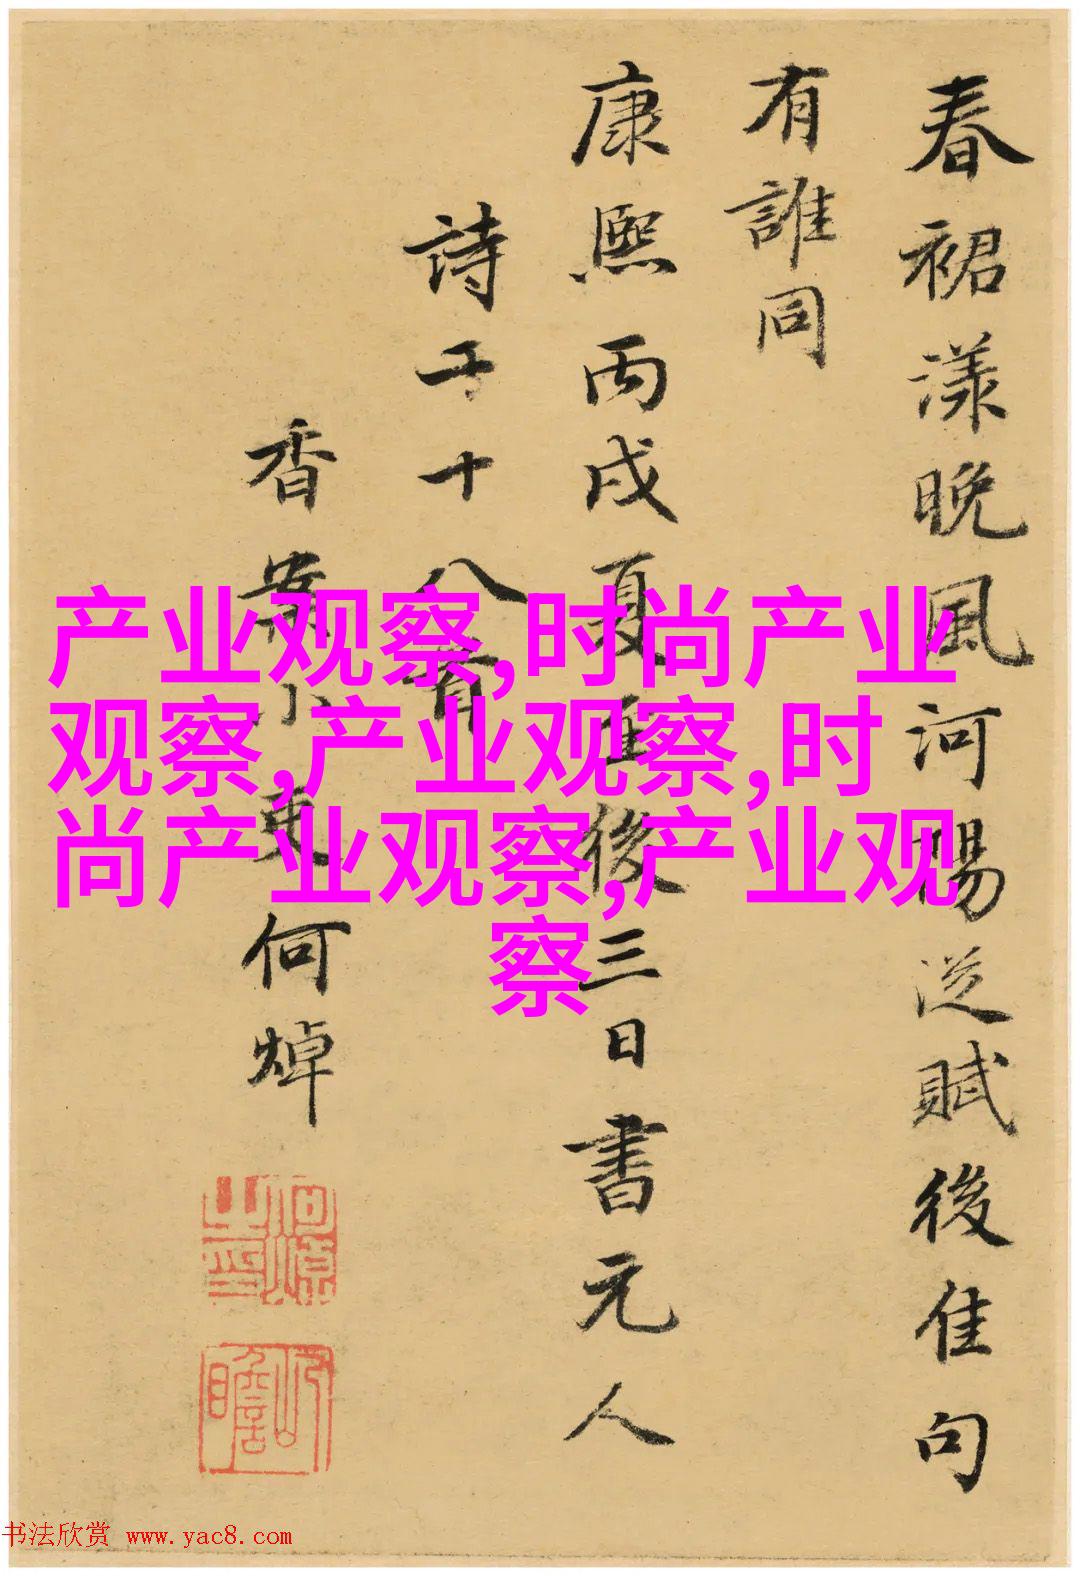 春裙漾晚風河陽從賦後佳句
有誰同
康熙丙戌夏後三日書元人
詩于十八首
香案小吏何焯
何焯之印
屺瞻
产业观察,时尚产业
观察,产业观察,时
尚产业观察,产业观
察
书法欣赏 www.yac8.com